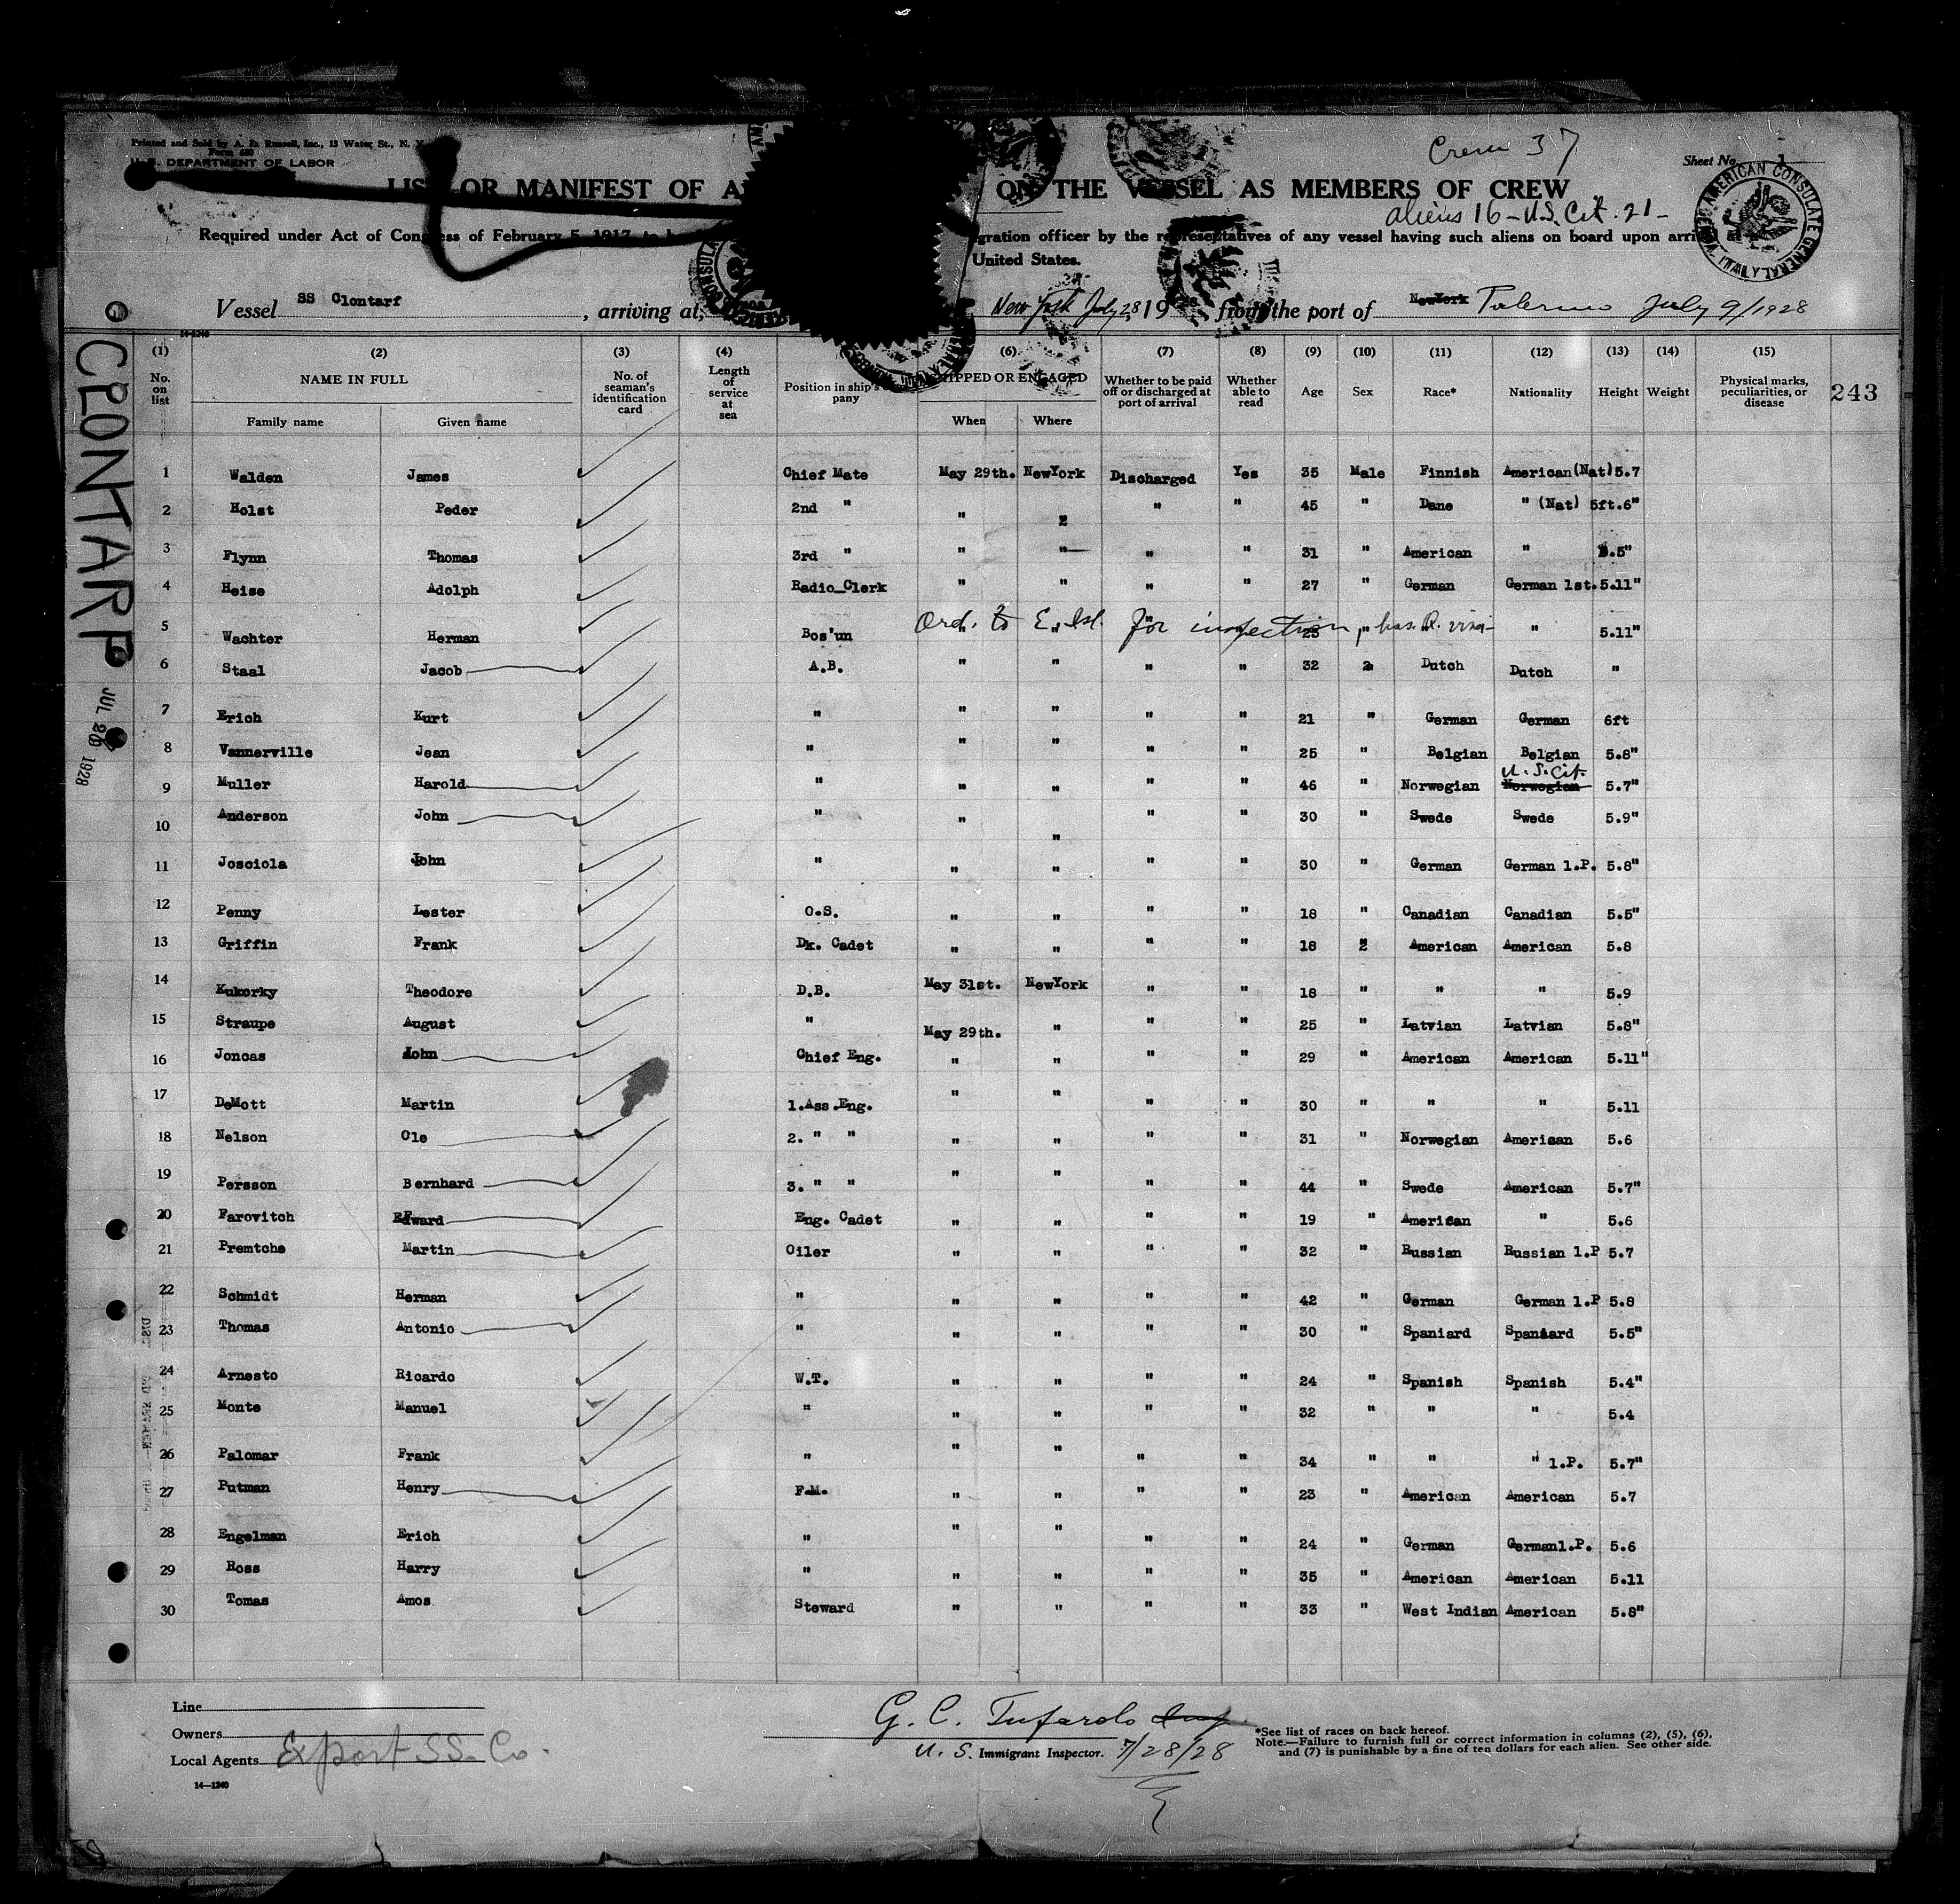 Printed and Sold by A. D. Russell, Inc., 13 Water St., N. Y.
Form 680
U. S. DEPARTMENT OF LABOR
Crew 37
Sheet No. 1
LIST OR MANIFEST OF A ON THE VESSEL AS MEMBERS OF CREW
aliens 16 - U.S. Cit. 21 -
AMERICAN CONSULATE GENERAL ITALY
Required under Act of Congress of February 5, 1917, to b gration officer by the representatives of any vessel having such aliens on board upon arri
United States.
Vessel SS Clontarf , arriving at, New York July 28, 19 from the port of NewYork Palermo July 9/1928
14-1240
CLONTARF
JUL 1928
243
(1) (2) (3) (4) (6) (7) (8) (9) (10) (11) (12) (13) (14) (15)
No. on list NAME IN FULL No. of seaman's identification card Length of service at sea Position in ship's pany SHIPPED OR ENGAGED Whether to be paid off or discharged at port of arrival Whether able to read Age Sex Race* Nationality Height Weight Physical marks, peculiarities, or disease
Family name Given name When Where
1 Walden James Chief Mate May 29th. NewYork Discharged Yes 35 Male Finnish American(Nat) 5.7
2 Holst Peder 2nd " " 2 " " 45 " Dane " (Nat) 5ft.6"
3 Flynn Thomas 3rd " " " " " 31 " American " 5.5"
4 Heise Adolph Radio Clerk " " " " 27 " German German 1st. 5.11"
Ord. to E. Isl. for inspection, has. R. visa
5 Wachter Herman Bos'un " " " 25 " " " 5.11"
6 Staal Jacob A.B. " " " " 32 2 Dutch Dutch "
7 Erich Kurt " " " " " 21 " German German 6ft
8 Vannerville Jean " " " " " 25 " Belgian Belgian 5.8"
U. S. Cit.
9 Muller Harold " " " " " 46 " Norwegian Norwegian 5.7"
10 Anderson John " " " " " 30 " Swede Swede 5.9"
11 Josciola John " " " " " 30 " German German 1.P. 5.8"
12 Penny Lester O.S. " " " " 18 " Canadian Canadian 5.5"
13 Griffin Frank Dk. Cadet " " " " 18 2 American American 5.8
14 Kukorky Theodore D.B. May 31st. NewYork " " 18 " " " 5.9
15 Straupe August " May 29th. " " " 25 " Latvian Latvian 5.8"
16 Joncas John Chief Eng. " " " " 29 " American American 5.11"
17 DeMott Martin 1.Ass.Eng. " " " " 30 " " " 5.11
18 Nelson Ole 2. " " " " " " 31 " Norwegian American 5.6
19 Persson Bernhard 3. " " " " " " 44 " Swede American 5.7"
20 Farovitch Edward Eng. Cadet " " " " 19 " American " 5.6
21 Premtche Martin Oiler " " " " 32 " Russian Russian 1.P 5.7
22 Schmidt Herman " " " " " 42 " German German 1.P 5.8
23 Thomas Antonio " " " " " 30 " Spaniard Spaniard 5.5"
24 Arnesto Ricardo W.T. " " " " 24 " Spanish Spanish 5.4"
25 Monte Manuel " " " " " 32 " " " 5.4
26 Palomar Frank " " " " " 34 " " " 1.P. 5.7"
27 Putman Henry F.M. " " " " 23 " American American 5.7
28 Engelman Erich " " " " " 24 " German German1.P. 5.6
29 Ross Harry " " " " " 35 " American American 5.11
30 Tomas Amos Steward " " " " 33 " West Indian American 5.8"
Line
Owners
Local Agents Export SS. Co.
14—1240
G. C. Tufarolo Insp
U. S. Immigrant Inspector. 7/28/28
*See list of races on back hereof.
Note.—Failure to furnish full or correct information in columns (2), (5), (6),
and (7) is punishable by a fine of ten dollars for each alien. See other side.